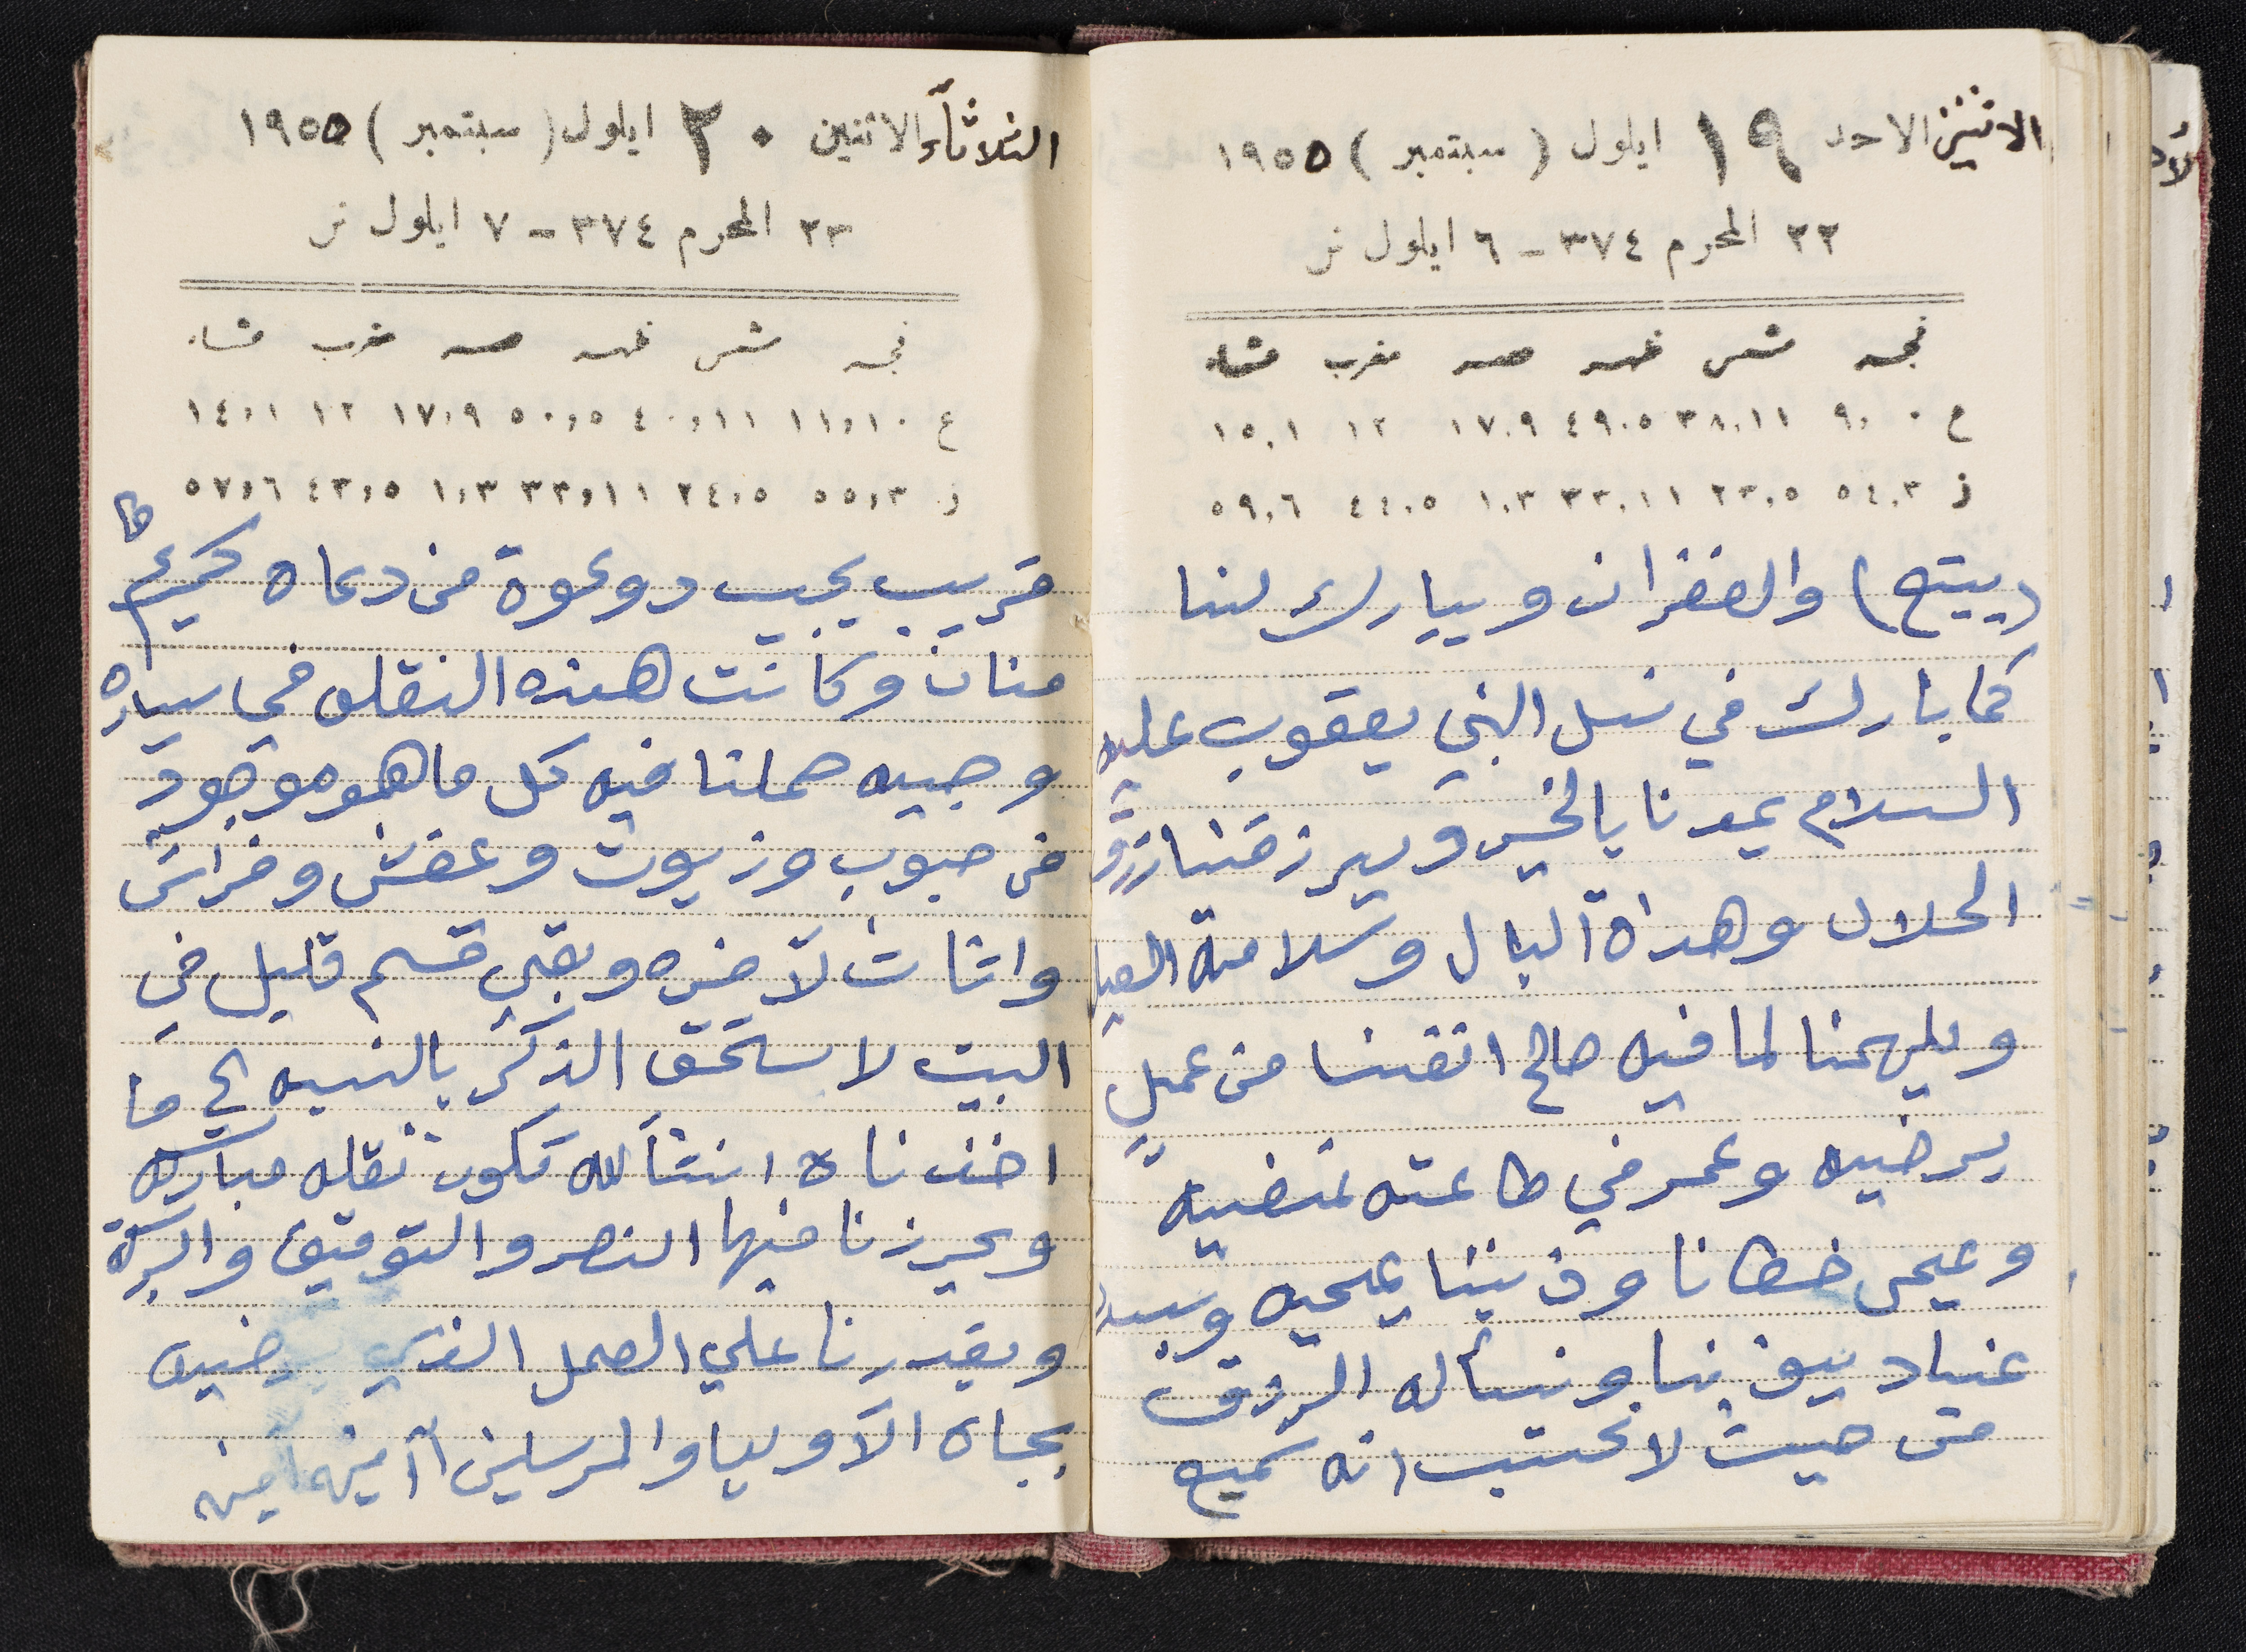 الاثنين الاحد ١٩ ايلول (سبتمبر) ١٩٥٥
٢٢ المحرم ٣٧٤ - ٦ ايلول ش
فجر شمس ظهر عصر مغرب عشاء
ع ٩,٠ ٣٨,١١ ٤٩,٥ ١٧,٩ ١٢ ١٥,١
ز ٥٤,٣ ٢٣,٥ ٣٣,١١ ١,٣ ٤٤,٥ ٥٩,٦
(يتبع) والغفران ويبارك لنا
كما بارك في نسل النبي يعقوب عليه
السلام يمدنا بالخير ويرزقنا رزق
الحلال وهداة البال وسلامة العيال
ويلهمنا لما فيه صالح انفسنا من عمل
يرضيه وعمر في طاعته نمضيه
وعيحى خطانا وذنبنا يمحيه ويسدد
عنا ديوننا ونسأله الرزق
من حيث لا نحتسب انه سميع
الثلاثاء الاثنين ٢٠ ايلول (سبتمبر) ١٩٥٥
٢٣ المحرم ٣٧٤ - ٧ ايلول ش
فجر شمس ظهر عصر مغرب عشاء
ع ١١,١٠ ٤٠,١١ ٥٠,٥ ١٧,٩ ١٢ ١٤,١
ز ٥٥,٣ ٢٤,٥ ٣٣,١١ ١,٣ ٤٣,٥ ٥٧,٦
قريب يجيب دوعوة من دعاه كريم
منان وكانت هذه النقله في سياره
وجيه حملنا فيه كل ما هو موجود
من حبوب وزيوت وعفش وفراش
واثاث لآخره وبقي قسم قليل في
البيت لا يستحق الذكر بالنسبه الى ما
اخذناه انشاَلله تكون نقله مباركه
ويحرزنا فيها النصر والتوفيق والبركة
ويقدرنا علي العمل الذي يرضيه
بجاه الآوليا والمرسلين اآمين آمين